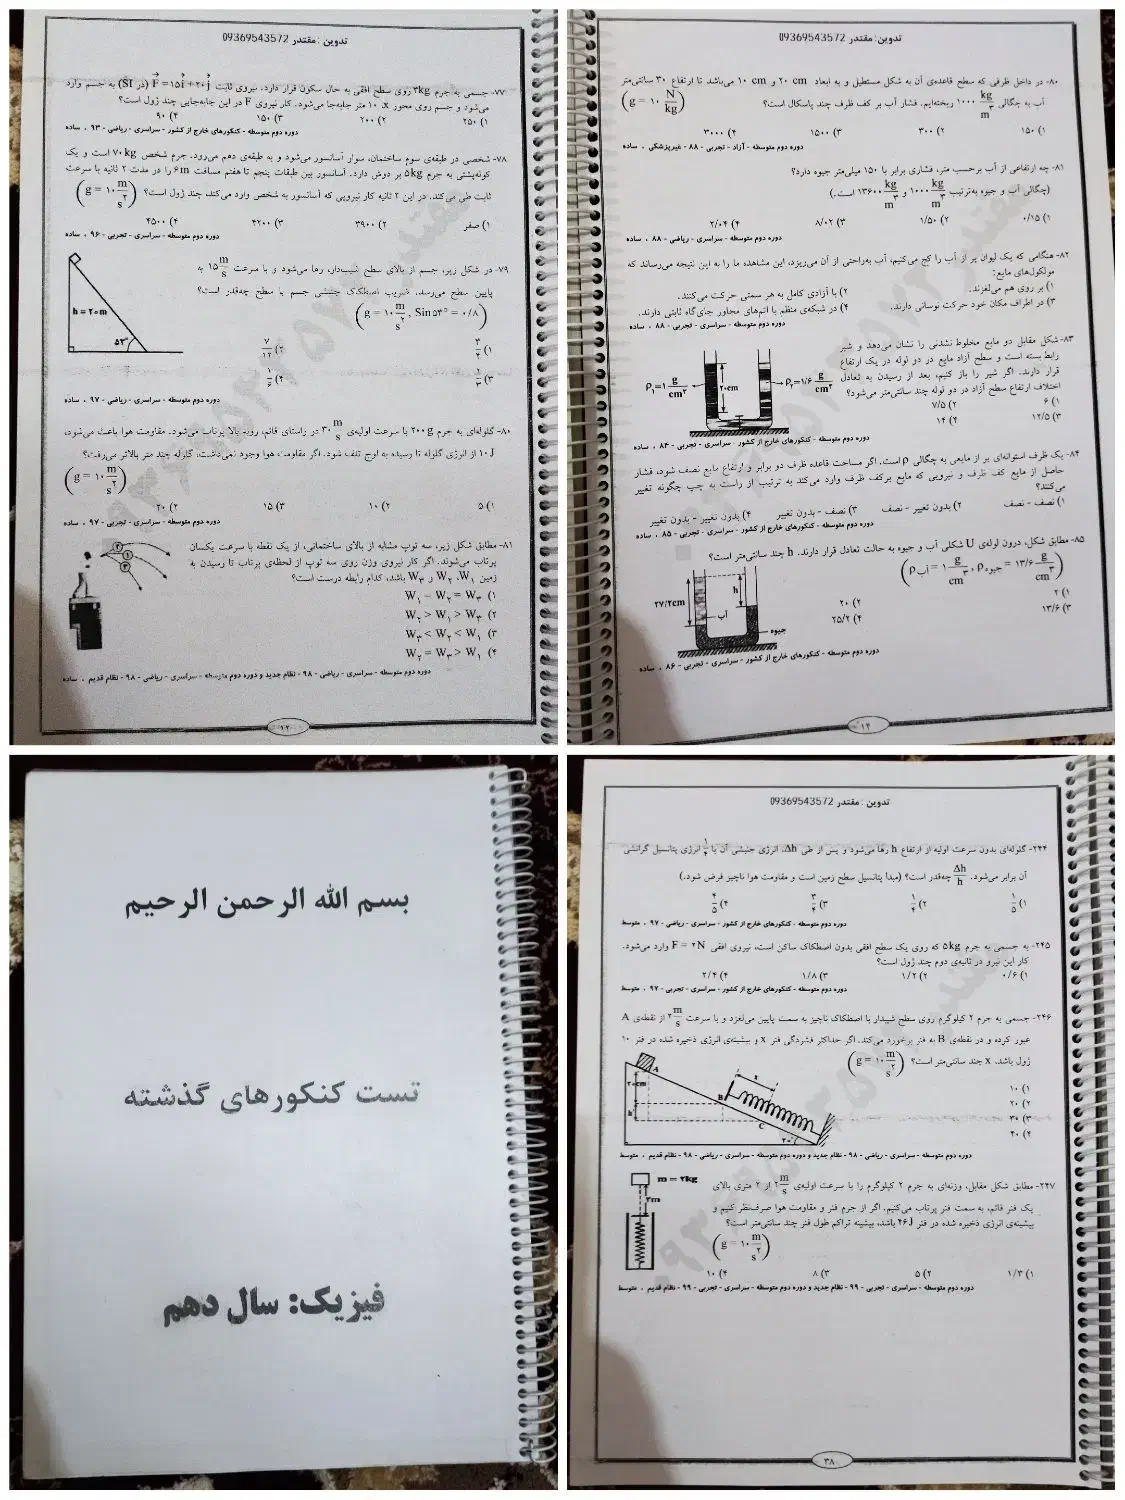 تدوین : مقتدر 09369543572
۷۷- جسمی به جرم ۳kg روی سطح افقی به حال سکون قرار دارد. نیروی ثابت F = ۱۵i + ۲۰j (در SI) به جسم وارد
می‌شود و جسم روی محور x، ۱۰ متر جابه‌جا می‌شود. کار نیروی F در این جابه‌جایی چند ژول است؟
۱) ۲۵۰ ۲) ۲۰۰ ۳) ۱۵۰ ۴) ۹۰
دوره دوم متوسطه - کنکورهای خارج از کشور - سراسری - ریاضی - ۹۳ ، ساده
۷۸- شخصی در طبقه‌ی سوم ساختمان، سوار آسانسور می‌شود و به طبقه‌ی دهم می‌رود. جرم شخص ۷۰kg است و یک
کوله‌پشتی به جرم ۵kg بر دوش دارد. آسانسور بین طبقات پنجم تا هفتم مسافت ۶m را در مدت ۲ ثانیه با سرعت
ثابت طی می‌کند. در این ۲ ثانیه کار نیرویی که آسانسور به شخص وارد می‌کند، چند ژول است؟ (g = ۱۰ m/s²)
۱) صفر ۲) ۳۹۰۰ ۳) ۴۲۰۰ ۴) ۴۵۰۰
دوره دوم متوسطه - سراسری - تجربی - ۹۶ ، ساده
۷۹- در شکل زیر، جسم از بالای سطح شیب‌دار، رها می‌شود و با سرعت ۱۵ m/s به
پایین سطح می‌رسد. ضریب اصطکاک جنبشی جسم با سطح چه‌قدر است؟
(g = ۱۰ m/s² , Sin ۵۳° = ۰/۸)
h = ۲۰m
۵۳°
۱) ۳/۴ ۲) ۷/۱۲
۳) ۱/۳ ۴) ۱/۶
دوره دوم متوسطه - سراسری - ریاضی - ۹۷ ، ساده
۸۰- گلوله‌ای به جرم ۲۰۰g با سرعت اولیه‌ی ۳۰ m/s در راستای قائم، رو به بالا پرتاب می‌شود. مقاومت هوا باعث می‌شود،
۱۰J از انرژی گلوله تا رسیدن به اوج تلف شود. اگر مقاومت هوا وجود نمی‌داشت، گلوله چند متر بالاتر می‌رفت؟
(g = ۱۰ m/s²)
۱) ۵ ۲) ۱۰ ۳) ۱۵ ۴) ۲۰
دوره دوم متوسطه - سراسری - تجربی - ۹۷ ، ساده
۸۱- مطابق شکل زیر، سه توپ مشابه از بالای ساختمانی، از یک نقطه با سرعت یکسان
پرتاب می‌شوند. اگر کار نیروی وزن روی سه توپ از لحظه‌ی پرتاب تا رسیدن به
زمین W۱، W۲ و W۳ باشد، کدام رابطه درست است؟
۱) W۱ = W۲ = W۳
۲) W۲ > W۱ > W۳
۳) W۳ < W۲ < W۱
۴) W۲ = W۳ > W۱
دوره دوم متوسطه - سراسری - ریاضی - ۹۸ - نظام جدید و دوره دوم متوسطه - سراسری - ریاضی - ۹۸ - نظام قدیم ، ساده
۱۳
تدوین : مقتدر 09369543572
۸۰- در داخل ظرفی که سطح قاعده‌ی آن به شکل مستطیل و به ابعاد ۲۰ cm و ۱۰ cm می‌باشد تا ارتفاع ۳۰ سانتی‌متر
آب به چگالی ۱۰۰۰ kg/m³ ریخته‌ایم. فشار آب بر کف ظرف چند پاسکال است؟ (g = ۱۰ N/kg)
۱) ۱۵۰ ۲) ۳۰۰ ۳) ۱۵۰۰ ۴) ۳۰۰۰
دوره دوم متوسطه - آزاد - تجربی - ۸۸ - غیرپزشکی ، ساده
۸۱- چه ارتفاعی از آب برحسب متر، فشاری برابر با ۱۵۰ میلی‌متر جیوه دارد؟
(چگالی آب و جیوه به‌ترتیب ۱۰۰۰ kg/m³ و ۱۳۶۰۰ kg/m³ است.)
۱) ۰/۱۵ ۲) ۱/۵۰ ۳) ۸/۰۲ ۴) ۲/۰۴
دوره دوم متوسطه - سراسری - ریاضی - ۸۸ ، ساده
۸۲- هنگامی که یک لیوان پر از آب را کج می‌کنیم، آب به‌راحتی از آن می‌ریزد، این مشاهده ما را به این نتیجه می‌رساند که
مولکول‌های مایع:
۱) بر روی هم می‌لغزند. ۲) با آزادی کامل به هر سمتی حرکت می‌کنند.
۳) در اطراف مکان خود حرکت نوسانی دارند. ۴) در شبکه‌ی منظم با اتم‌های مجاور جای‌گاه ثابتی دارند.
دوره دوم متوسطه - سراسری - تجربی - ۸۸ ، ساده
۸۳- شکل مقابل دو مایع مخلوط نشدنی را نشان می‌دهد و شیر
رابط بسته است و سطح آزاد مایع در دو لوله در یک ارتفاع
قرار دارند. اگر شیر را باز کنیم، بعد از رسیدن به تعادل
اختلاف ارتفاع سطح آزاد در دو لوله چند سانتی‌متر می‌شود؟
ρ۱=۱ g/cm³ ۲۰cm ρ۲=۱/۶ g/cm³
۱) ۶ ۲) ۷/۵
۳) ۱۲/۵ ۴) ۱۴
دوره دوم متوسطه - کنکورهای خارج از کشور - سراسری - تجربی - ۸۴ ، ساده
۸۴- یک ظرف استوانه‌ای پر از مایعی به چگالی ρ است. اگر مساحت قاعده ظرف دو برابر و ارتفاع مایع نصف شود، فشار
حاصل از مایع کف ظرف و نیرویی که مایع برکف ظرف وارد می‌کند به ترتیب از راست به چپ چگونه تغییر
می‌کنند؟
۱) نصف - نصف ۲) بدون تغییر - نصف ۳) نصف - بدون تغییر ۴) بدون تغییر - بدون تغییر
دوره دوم متوسطه - کنکورهای خارج از کشور - سراسری - تجربی - ۸۵ ، ساده
۸۵- مطابق شکل، درون لوله‌ی U شکلی آب و جیوه به حالت تعادل قرار دارند. h چند سانتی‌متر است؟
(ρ آب = ۱ g/cm³ , ρ جیوه = ۱۳/۶ g/cm³)
۲۷/۲cm
h
آب
جیوه
۱) ۲ ۲) ۲۰
۳) ۱۳/۶ ۴) ۲۵/۲
دوره دوم متوسطه - کنکورهای خارج از کشور - سراسری - تجربی - ۸۶ ، ساده
۱۴
بسم الله الرحمن الرحیم
تست کنکورهای گذشته
فیزیک: سال دهم
تدوین : مقتدر 09369543572
۲۴۴- گلوله‌ای بدون سرعت اولیه از ارتفاع h رها می‌شود و پس از طی Δh، انرژی جنبشی آن با ۱/۴ انرژی پتانسیل گرانشی
آن برابر می‌شود. Δh/h چه‌قدر است؟ (مبدا پتانسیل سطح زمین است و مقاومت هوا ناچیز فرض شود.)
۱) ۱/۵ ۲) ۱/۴ ۳) ۳/۴ ۴) ۴/۵
دوره دوم متوسطه - کنکورهای خارج از کشور - سراسری - ریاضی - ۹۷ ، متوسط
۲۴۵- به جسمی به جرم ۵kg که روی یک سطح افقی بدون اصطکاک ساکن است، نیروی افقی F = ۲N وارد می‌شود.
کار این نیرو در ثانیه‌ی دوم چند ژول است؟
۱) ۰/۶ ۲) ۱/۲ ۳) ۱/۸ ۴) ۲/۴
دوره دوم متوسطه - کنکورهای خارج از کشور - سراسری - تجربی - ۹۷ ، متوسط
۲۴۶- جسمی به جرم ۲ کیلوگرم روی سطح شیبدار با اصطکاک ناچیز به سمت پایین می‌لغزد و با سرعت ۲ m/s از نقطه‌ی A
عبور کرده و در نقطه‌ی B به فنر برخورد می‌کند. اگر حداکثر فشردگی فنر x و بیشینه‌ی انرژی ذخیره شده در فنر ۱۰
ژول باشد، x چند سانتی‌متر است؟ (g = ۱۰ m/s²)
A
۲۰cm
h'
B
x
C
۳۰°
۱) ۱۰
۲) ۲۰
۳) ۳۰
۴) ۴۰
دوره دوم متوسطه - سراسری - ریاضی - ۹۸ - نظام جدید و دوره دوم متوسطه - سراسری - ریاضی - ۹۸ - نظام قدیم ، متوسط
۲۴۷- مطابق شکل مقابل، وزنه‌ای به جرم ۲ کیلوگرم را با سرعت اولیه‌ی ۲ m/s از ۲ متری بالای
یک فنر قائم، به سمت فنر پرتاب می‌کنیم. اگر از جرم فنر و مقاومت هوا صرف‌نظر کنیم و
بیشینه‌ی انرژی ذخیره شده در فنر ۴۶J باشد، بیشینه تراکم طول فنر چند سانتی‌متر است؟
(g = ۱۰ m/s²)
m = ۲kg
۲m
۱) ۱/۳ ۲) ۵ ۳) ۸ ۴) ۱۰
دوره دوم متوسطه - سراسری - تجربی - ۹۹ - نظام جدید و دوره دوم متوسطه - سراسری - تجربی - ۹۹ - نظام قدیم ، متوسط
۳۸